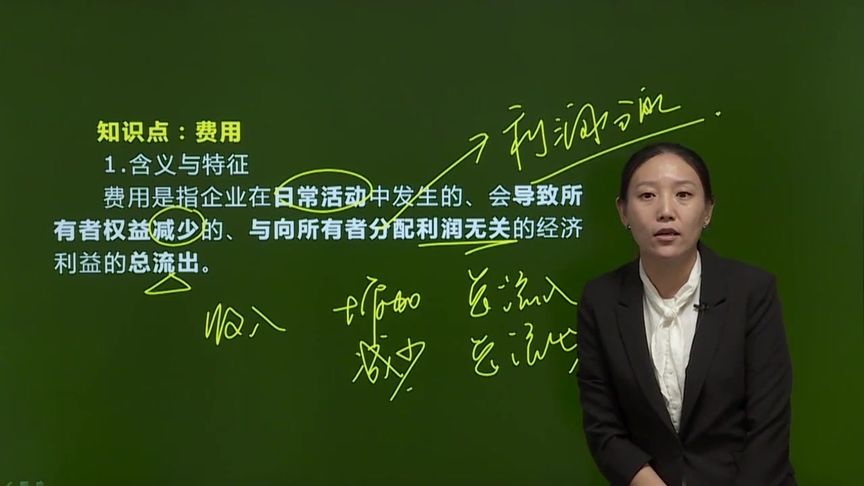 知识点：费用
利润分配
1.含义与特征
费用是指企业在日常活动中发生的、会导致所
有者权益减少的、与向所有者分配利润无关的经济
利益的总流出。
收入 增加 总流入
减少 总流出